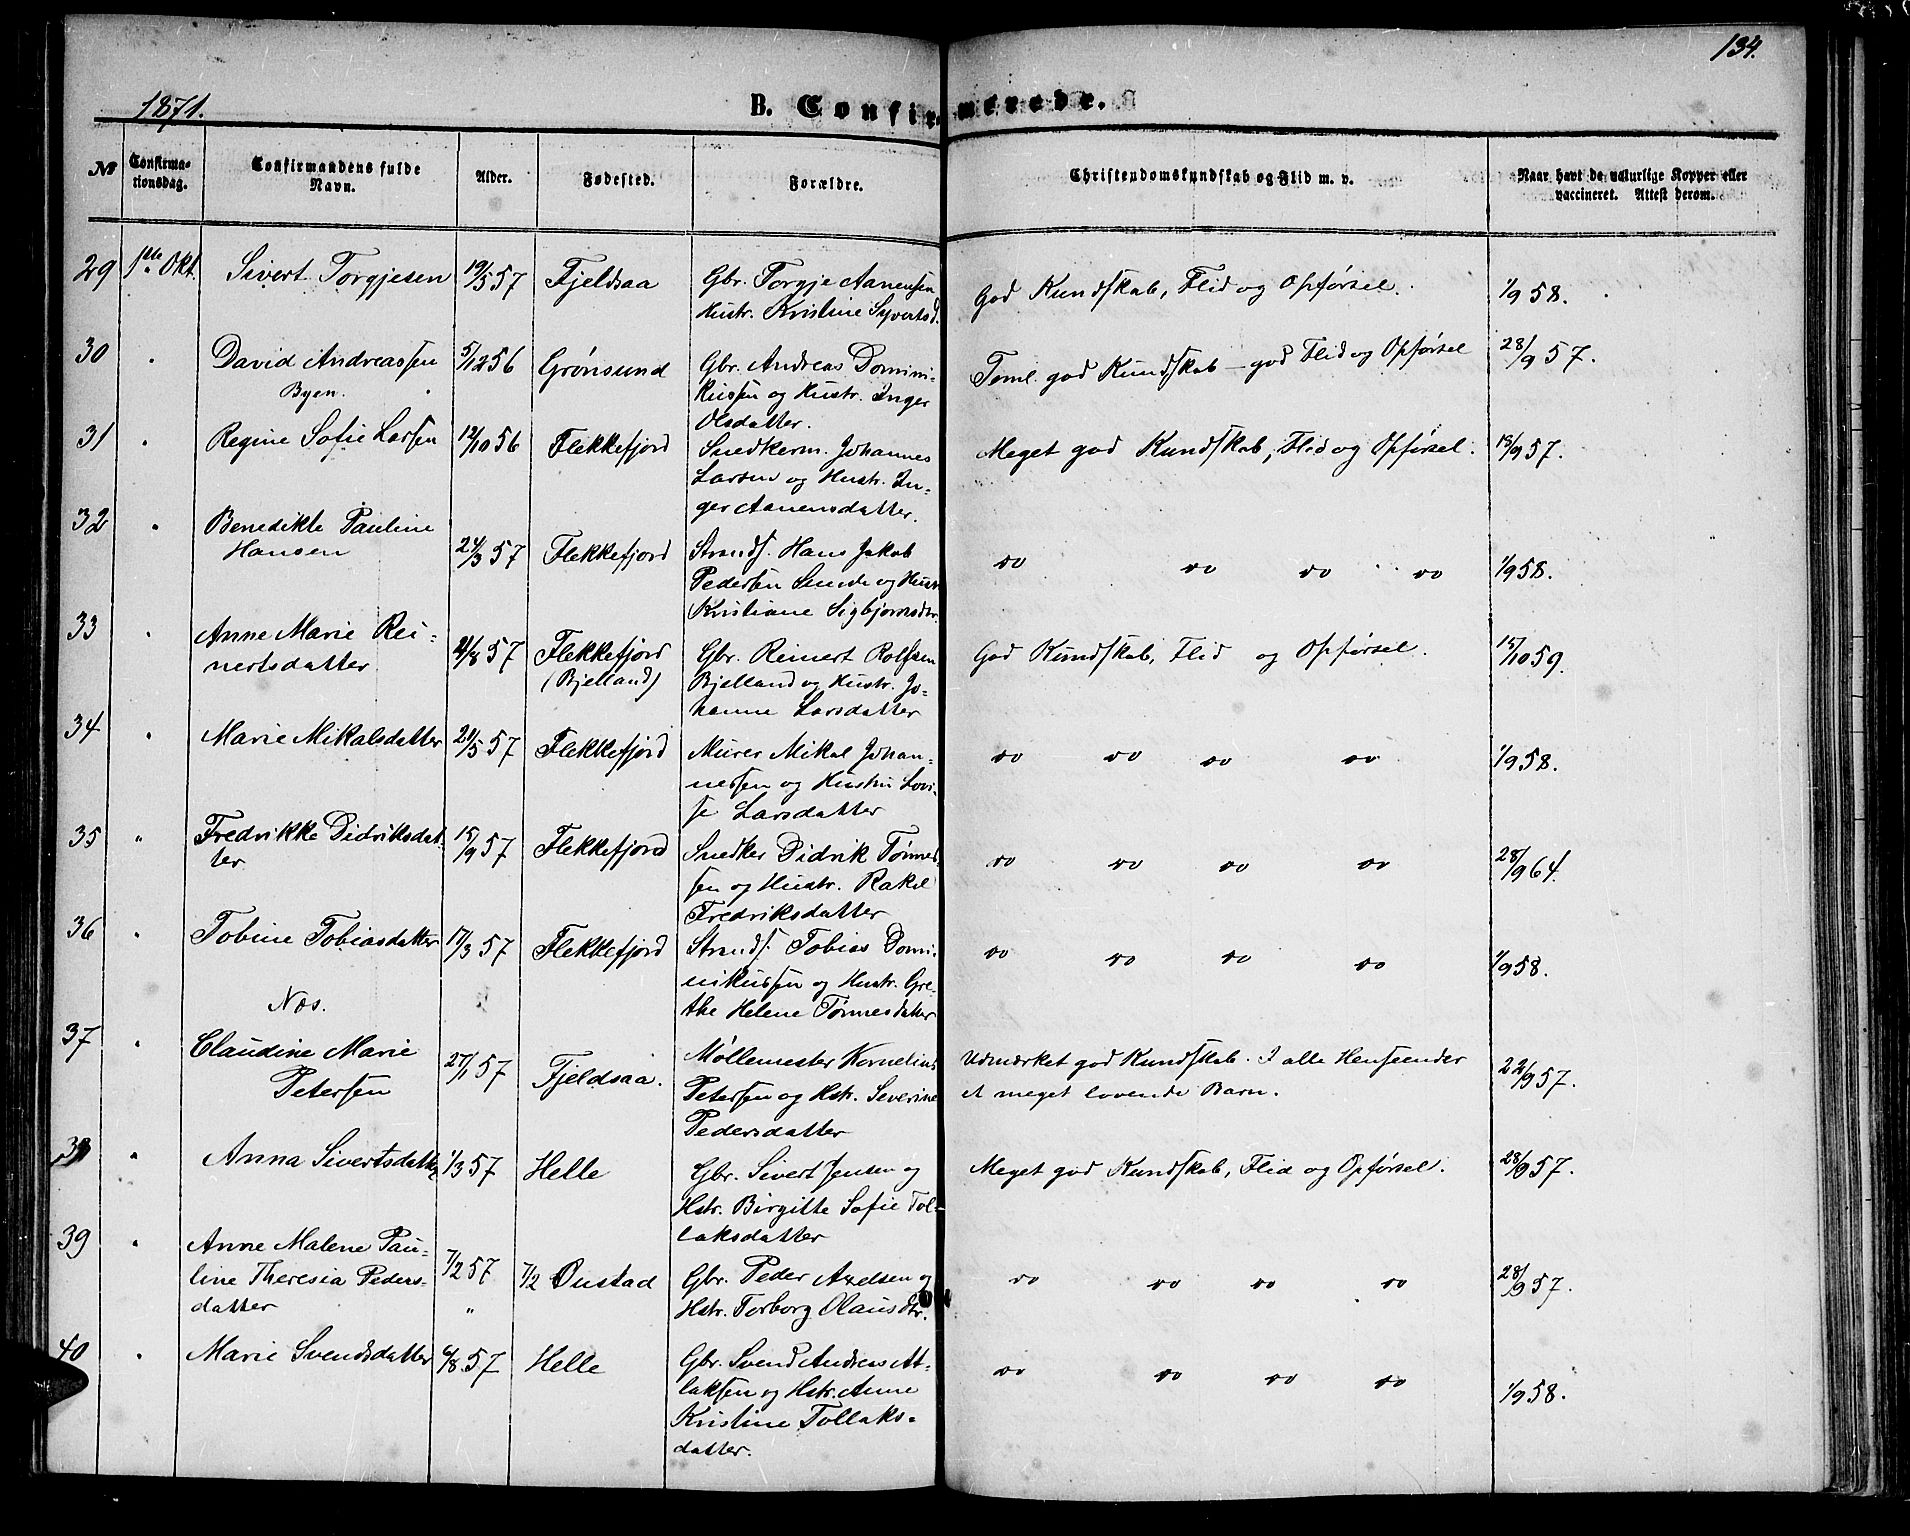 134.
1871.
B. Confirmerede.
No
Confirmationsdag.
Confirmandens fulde Navn.
Alder.
Fødested.
Forældre.
Christendomskundskab og Flid m. v.
Naar havt de naturlige Kopper eller vaccineret. Attest derom.
29 1ste Okt. Sivert Torgjesen 19/5 57 Fjeldsaa Gbr. Torgje Aanensen
Hustr. Kristine Syvertsd. God Kundskab, Flid og Opførsel. 1/9 58.
30 " David Andreassen 5/12 56 Grønsund Gbr. Andreas Domini-
Byen. kussen og Hustr. Inger
Olsdatter. Teml. god Kundskab – god Flid og Opførsel 28/9 57.
31 " Regine Sofie Larsen 12/10 56 Flekkefjord Snedkerm. Johannes
Larsen og Hustr. In-
ger Aanensdatter. Meget god Kundskab, Flid og Opførsel. 18/9 57.
32 " Benedikte Pauline
Hansen 24/3 57 Flekkefjord Strands. Hans Jakob
Pedersen Sunde og Hustr.
Kristiane Sigbjørnsdtr. do do do do 1/9 58.
33 " Anne Marie Rei-
nertsdatter 21/8 57 Flekkefjord
(Bjelland) Gbr. Reinert Rolfsen
Bjelland og Hustr. Jo-
hanne Larsdatter God Kundskab, Flid og Opførsel. 15/10 59.
34 " Marie Mikalsdatter 21/5 57 Flekkefjord Murer Mikal Johan-
nessen og Hustru Lovi-
se Larsdatter do do do do 1/9 58.
35 " Fredrikke Didriksdat-
ter 15/9 57 Flekkefjord Snedker Didrik Tønnes-
sen og Hustr. Rakel
Fredriksdatter do do do do 28/9 64.
36 " Tobine Tobiasdatter 17/3 57 Flekkefjord Strands. Tobias Domi-
nikussen og Hustr. Gre-
the Helene Tønnesdatter do do do do 1/9 58.
Næs.
37 " Claudine Marie
Petersen 27/1 57 Fjeldsaa. Møllemester Kornelius
Petersen og Hstr. Severine
Pedersdatter Udmærket god Kundskab. I alle Henseender
et meget lovende Barn. 22/9 57.
38 " Anna Sivertsdatter 1/3 57 Helle Gbr. Sivert Jensen og
Hstr. Birgitte Sofie Tol-
laksdatter Meget god Kundskab, Flid og Opførsel. 28/9 57.
39 " Anne Malene Pau-
line Theresia Peders-
datter 7/2 57 " 7/2 Oustad Gbr. Peder Axelsen og
Hstr. Torborg Olausdtr. do do do do 28/9 57.
40 " Marie Svendsdatter 6/8 57 Helle Gbr. Svend Andreas At-
laksen og Hstr. Anne
Kristine Tollaks-
datter. do do do do 1/9 58.